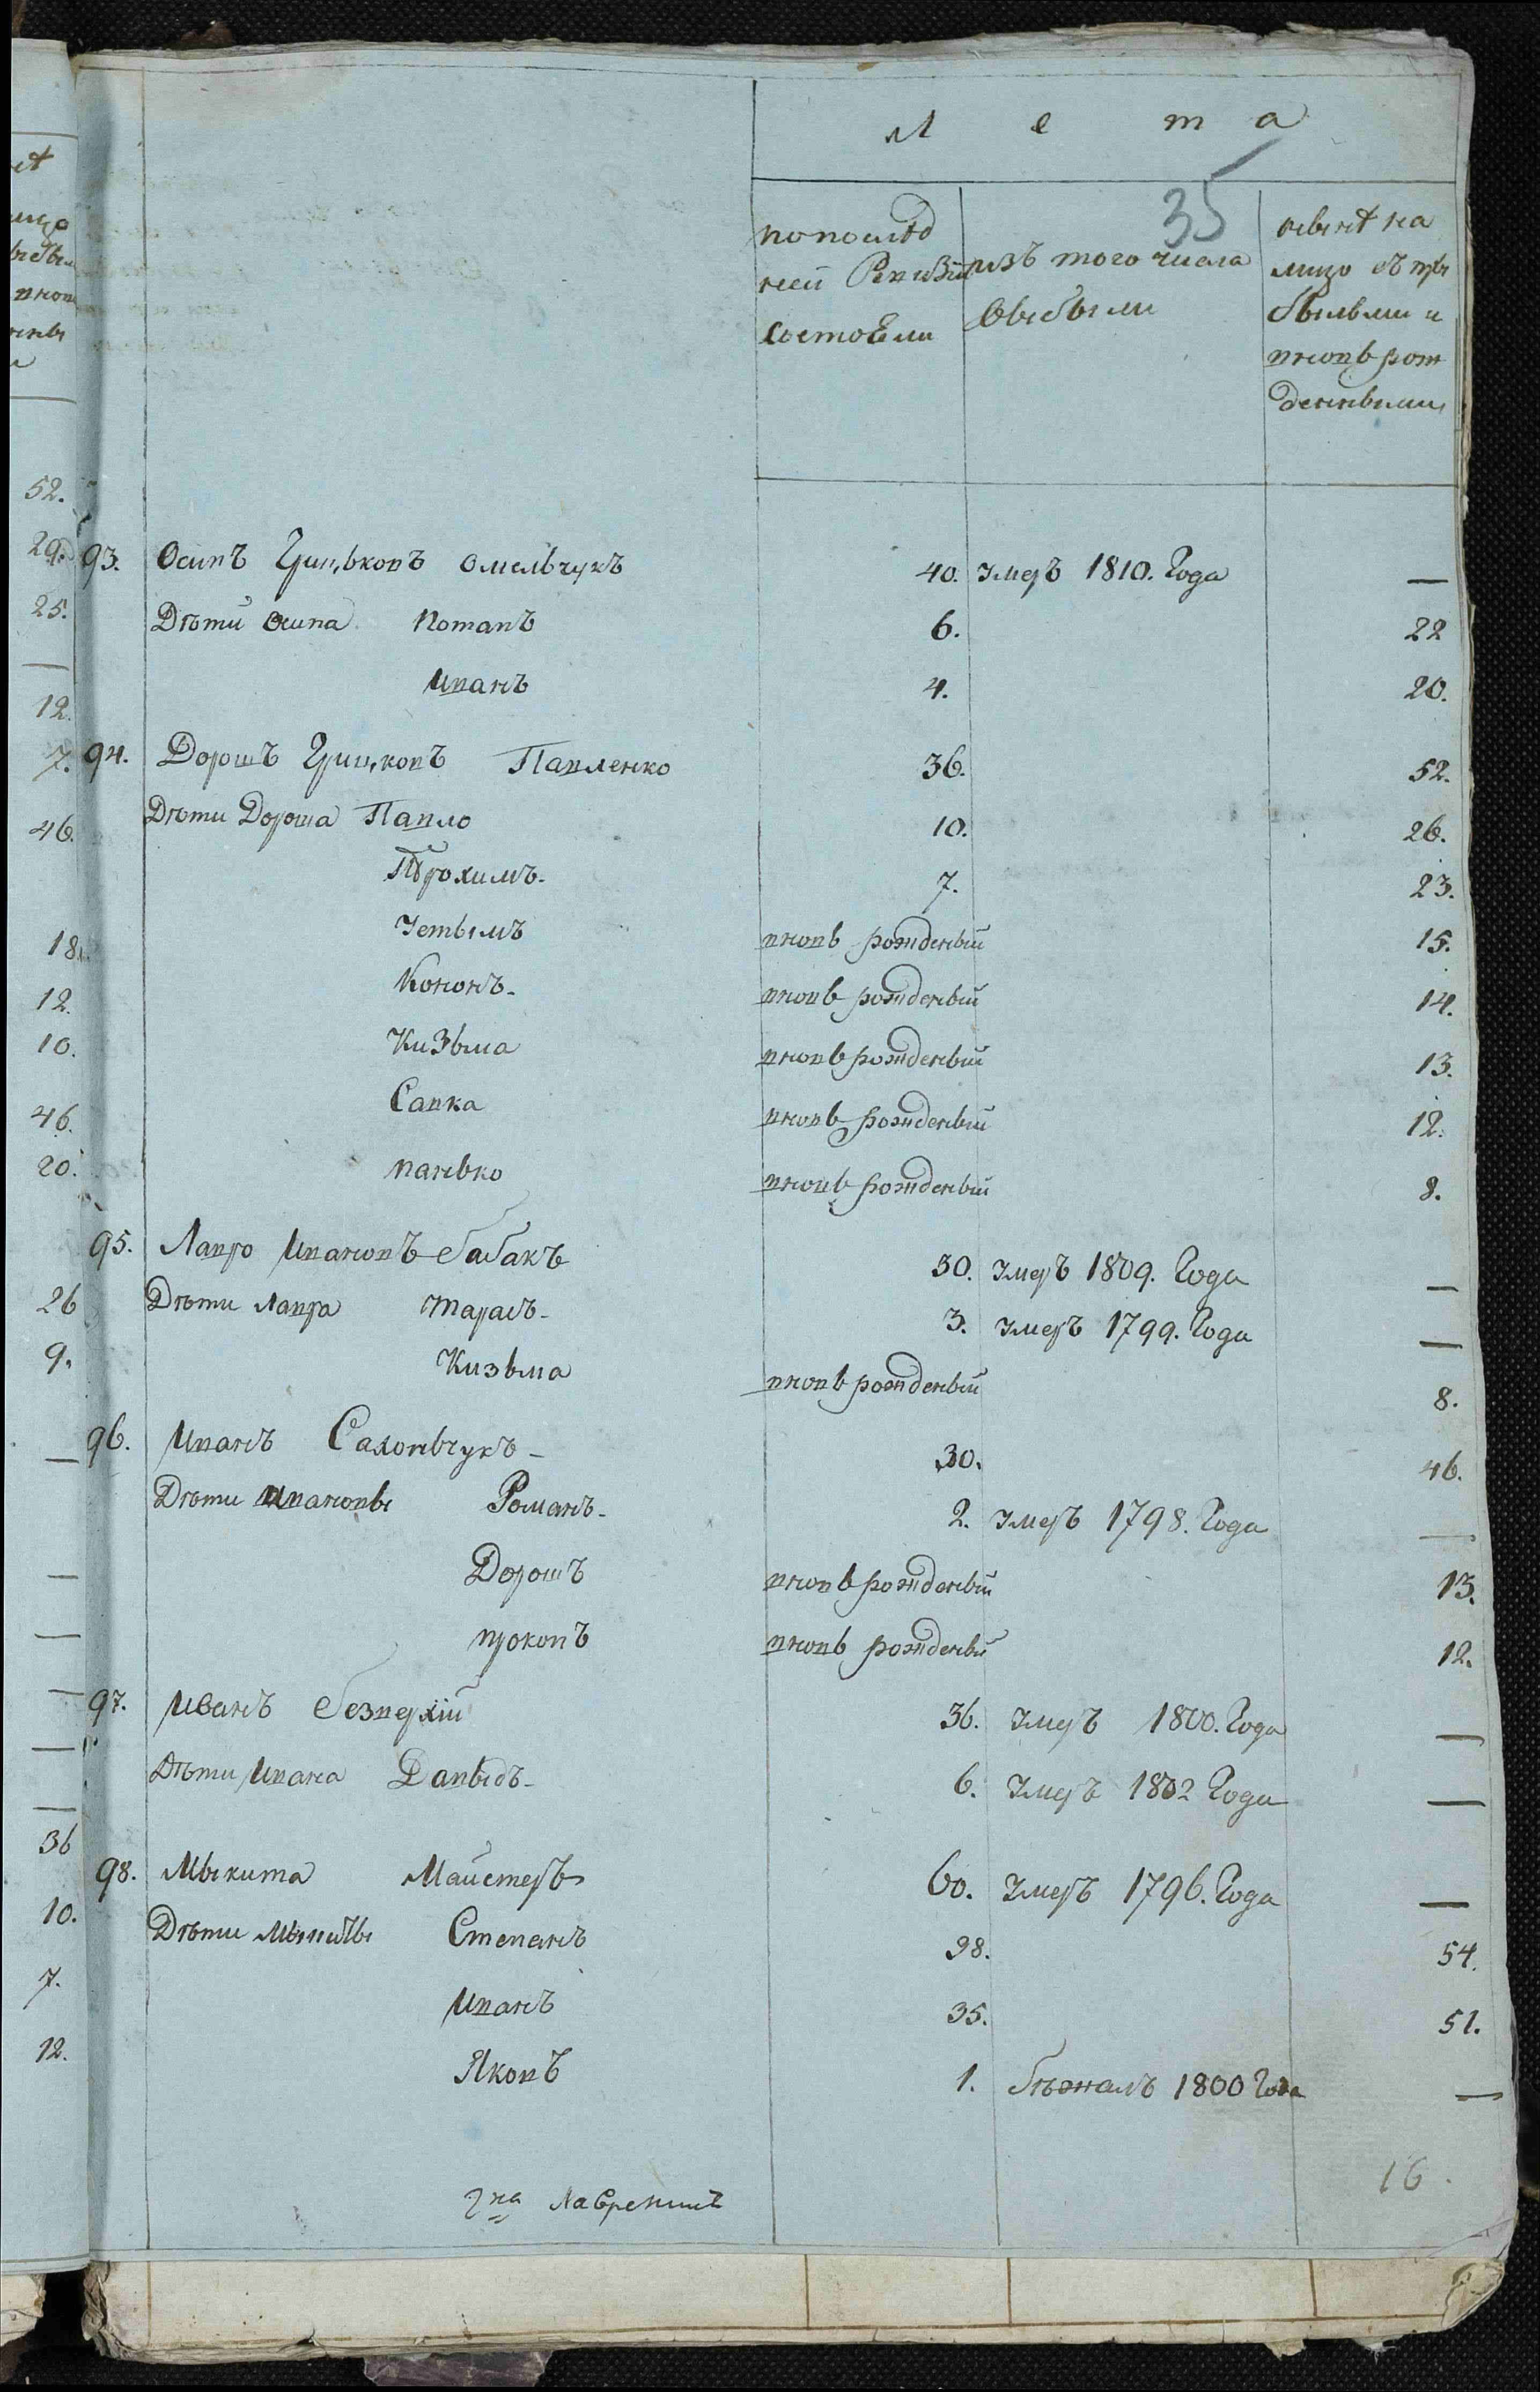 Лета
35
попослѣд
ней Ревизіи
состоЕли
изъ того числа
выбыли
нынѣ на
лицо съ при
былыми и
вновь рож
денными
93. Осипъ Грицьковъ Омельчукъ 40. Умеръ 1810. Года —
Дѣти Осипа Потапъ 6. 22
Иванъ 4. 20.
94. Дорошъ Грицковъ Павленко 36. 52.
Дѣти Дороша Павло 10. 26.
Трохимъ 7. 23.
Устымъ вновь рожденый 15.
Кононъ вновь рожденый 14.
Кизьма вновь рожденый 13.
Савка вновь рожденый 12.
панько вновь рожденый 8.
95. Лавро Ивановъ бабакъ 30. Умеръ 1809. Года —
Дѣти Лавра Тарасъ 3. Умеръ 1799. Года —
Кизьма вновь рожденый 8.
96. Иванъ Сахончукъ 30. 46.
Дѣти Ивановы Романъ 2. Умеръ 1798. Года —
Дорошъ вновь рожденый 13.
прокопъ вновь рожденый 12.
97. Иванъ безверхій 36. Умеръ 1800. Года —
Дѣти Ивана Давыдъ 6. Умеръ 1802 Года —
98. Мыкита Майстеръ 60. Умеръ 1796. Года —
Дѣти Мыкиты Степанъ 38. 54.
Иванъ 35. 51.
Яковъ 1. бѣжалъ 1800 Года —
16.